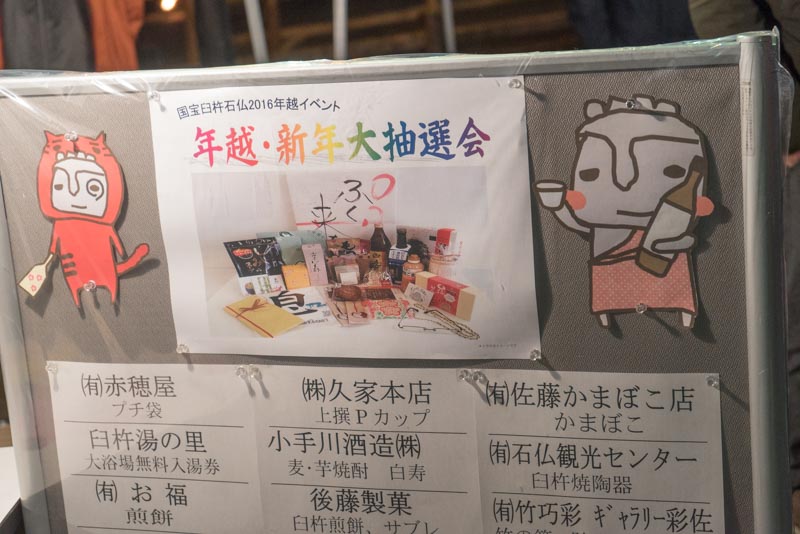 国宝臼杵石仏2016年越イベント
年越・新年大抽選会
ふく
来
㈲赤穂屋
プチ袋
臼杵湯の里
大浴場無料入湯券
㈲お福
煎餅
㈱久家本店
上撰Pカップ
小手川酒造㈱
麦・芋焼酎 白寿
後藤製菓
臼杵煎餅、サブレ
㈲佐藤かまぼこ店
かまぼこ
㈲石仏観光センター
臼杵焼陶器
㈲竹巧彩 ギャラリー彩佐